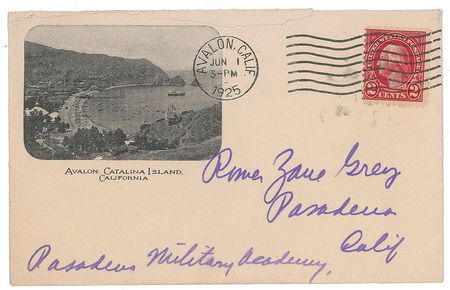 AVALON, CALIF.
JUN 1
3-PM
1925
2 CENTS 2
AVALON, CATALINA ISLAND,
CALIFORNIA
Romer Zane Grey
Pasadena
Calif
Pasadena Military Academy,